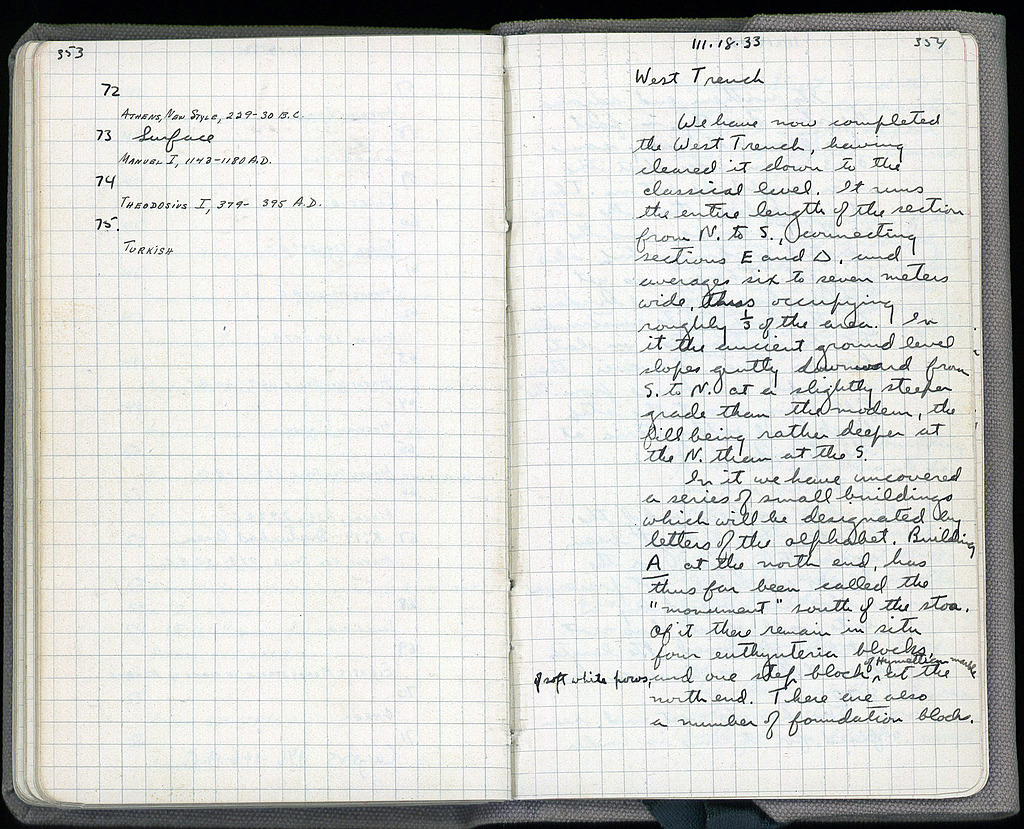 353
72
ATHENS, NEW STYLE, 229-30 B.C.
73 Surface
MANUEL I, 1143-1180 A.D.
74
THEODOSIUS I, 379- 395 A.D.
75.
TURKISH
III.18.33 354
West Trench
We have now completed
the West Trench, having
cleared it down to the
classical level. It runs
the entire length of the section
from N. to S., connecting
sections E and Δ, and
averages six to seven meters
wide, thus occupying
roughly 1/3 of the area. In
it the ancient ground level
slopes gently downward from
S. to N. at a slightly steeper
grade than the modern, the
fill being rather deeper at
the N. than at the S.
In it we have uncovered
a series of small buildings
which will be designated by
letters of the alphabet. Building
A at the north end, has
thus far been called the
"monument" south of the stoa.
Of it there remain in situ
four euthynteria blocks,
of soft white poros, and one step block, of Hymettian marble at the
north end. There are also
a number of foundation block.